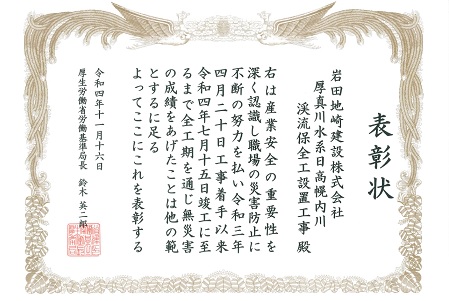 表彰状
岩田地崎建設株式会社
厚真川水系日高幌内川
渓流保全工設置工事 殿
右は産業安全の重要性を
深く認識し職場の災害防止に
不断の努力を払い令和三年
四月二十日工事着手以来
令和四年七月十五日竣工に至
るまで全工期を通じ無災害
の成績をあげたことは他の範
とするに足る
よってここにこれを表彰する
令和四年十一月十六日
厚生労働省労働基準局長 鈴木 英二郎